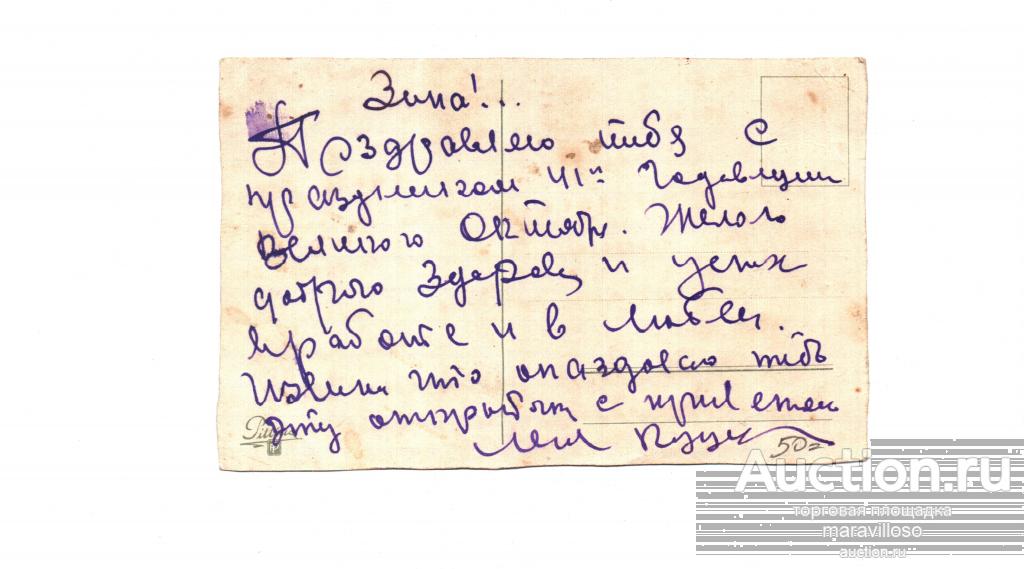 Зина!...
Поздравляю тибя с
праздником 41й годовщин
великого Октябр. Желаю
доброго здаров и успех
в работе и в любви.
Извини что опаздоваю тибе
эту открытк с приветом
50=
Auction.ru
торговая площадка
maravilloso
auction.ru